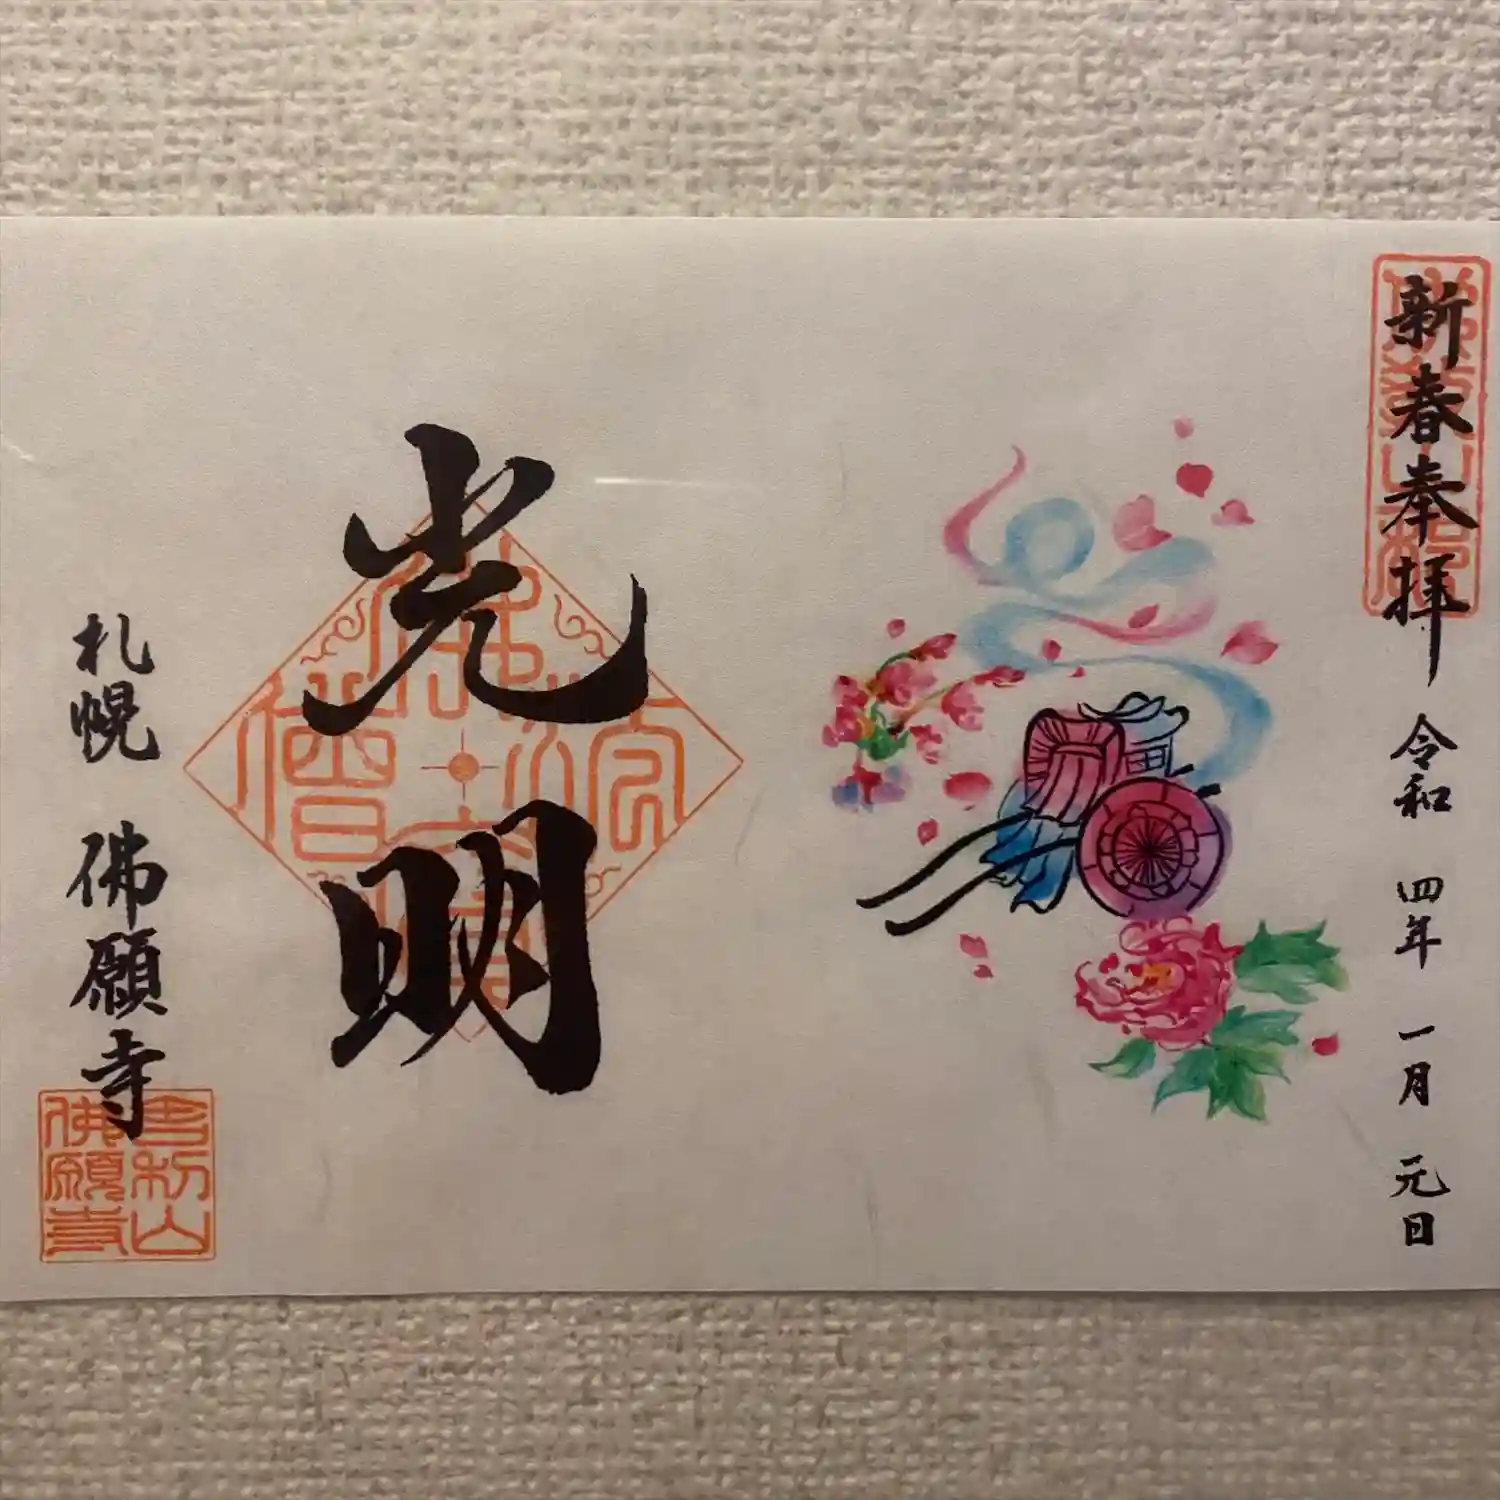 新春奉拝
令和 四年 一月 元日
光明
札幌 佛願寺
佛願寺